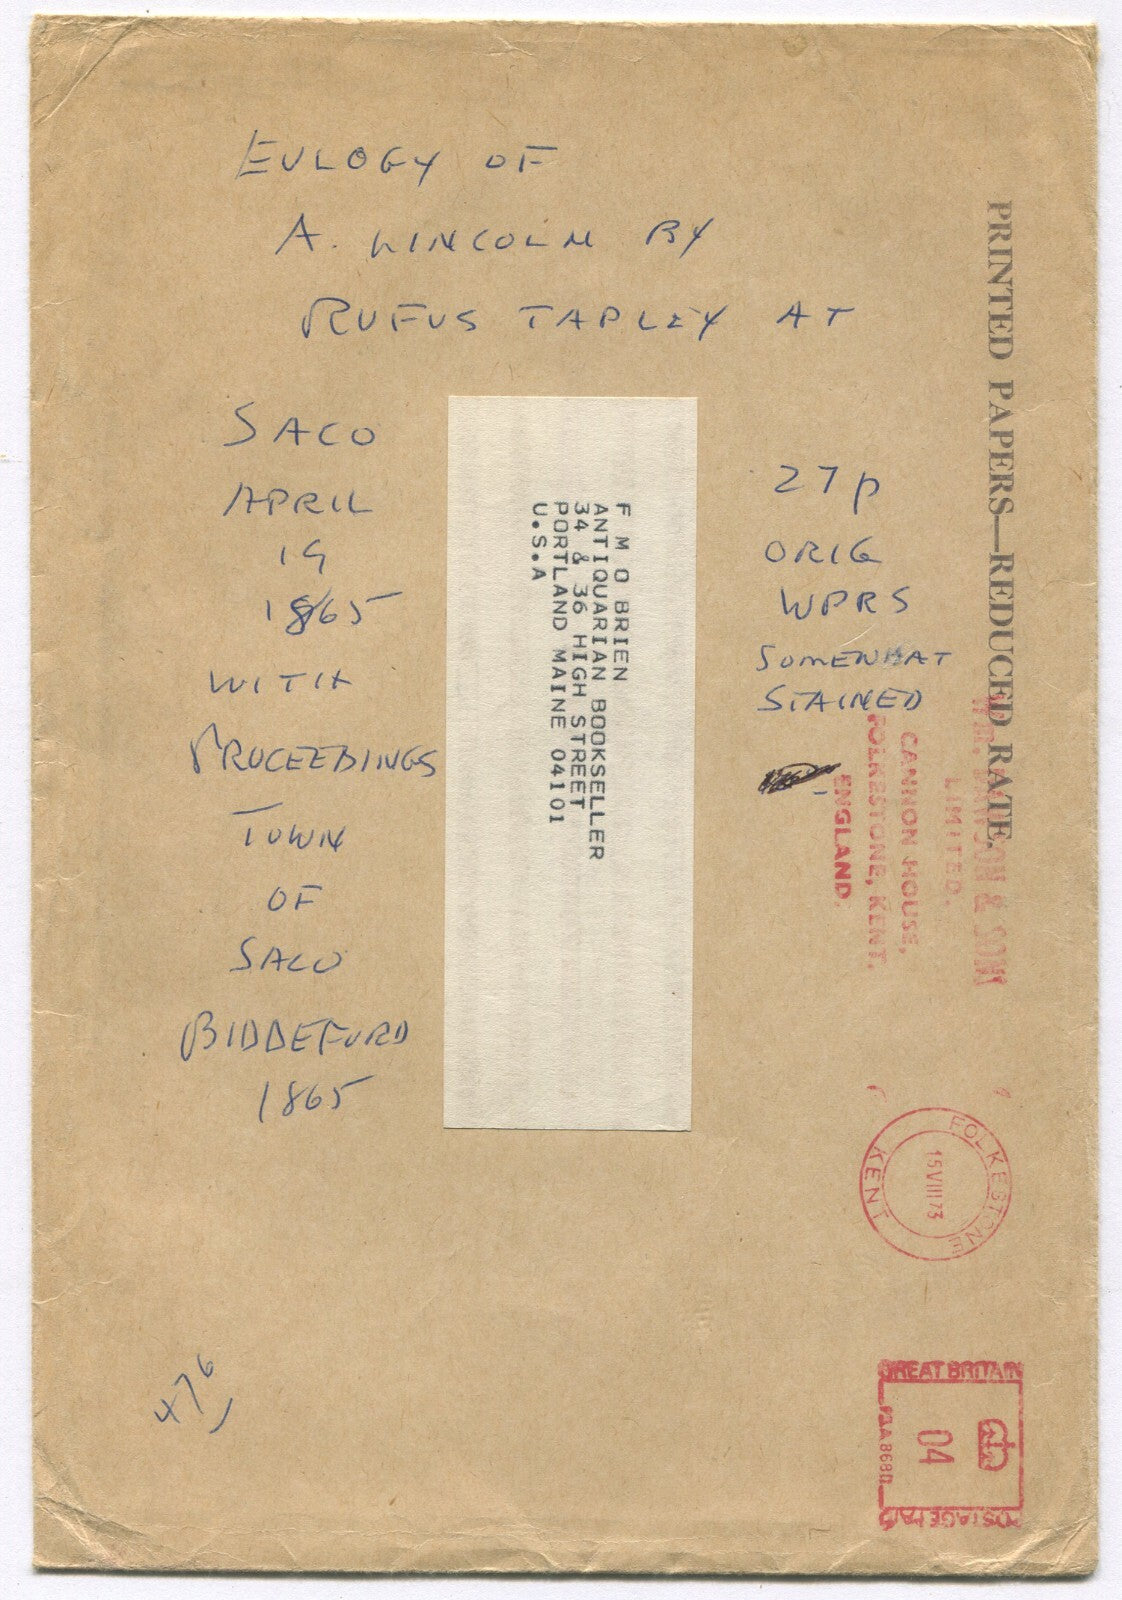 EULOGY OF
A. LINCOLN BY
RUFUS TAPLEY AT
SACO
APRIL
19
1865
WITH
PROCEEDINGS
TOWN
OF
SACO
BIDDEFORD
1865
27p
ORIG
WPRS
SOMEWHAT
STAINED
F M O BRIEN
ANTIQUARIAN BOOKSELLER
34 & 36 HIGH STREET
PORTLAND MAINE 04101
U.S.A
PRINTED PAPERS—REDUCED RATE.
Wm. DAWSON & SON
LIMITED.
CANNON HOUSE,
FOLKESTONE, KENT.
ENGLAND.
FOLKESTONE
15 VIII 73
KENT
GREAT BRITAIN
04
POSTAGE PAID
476